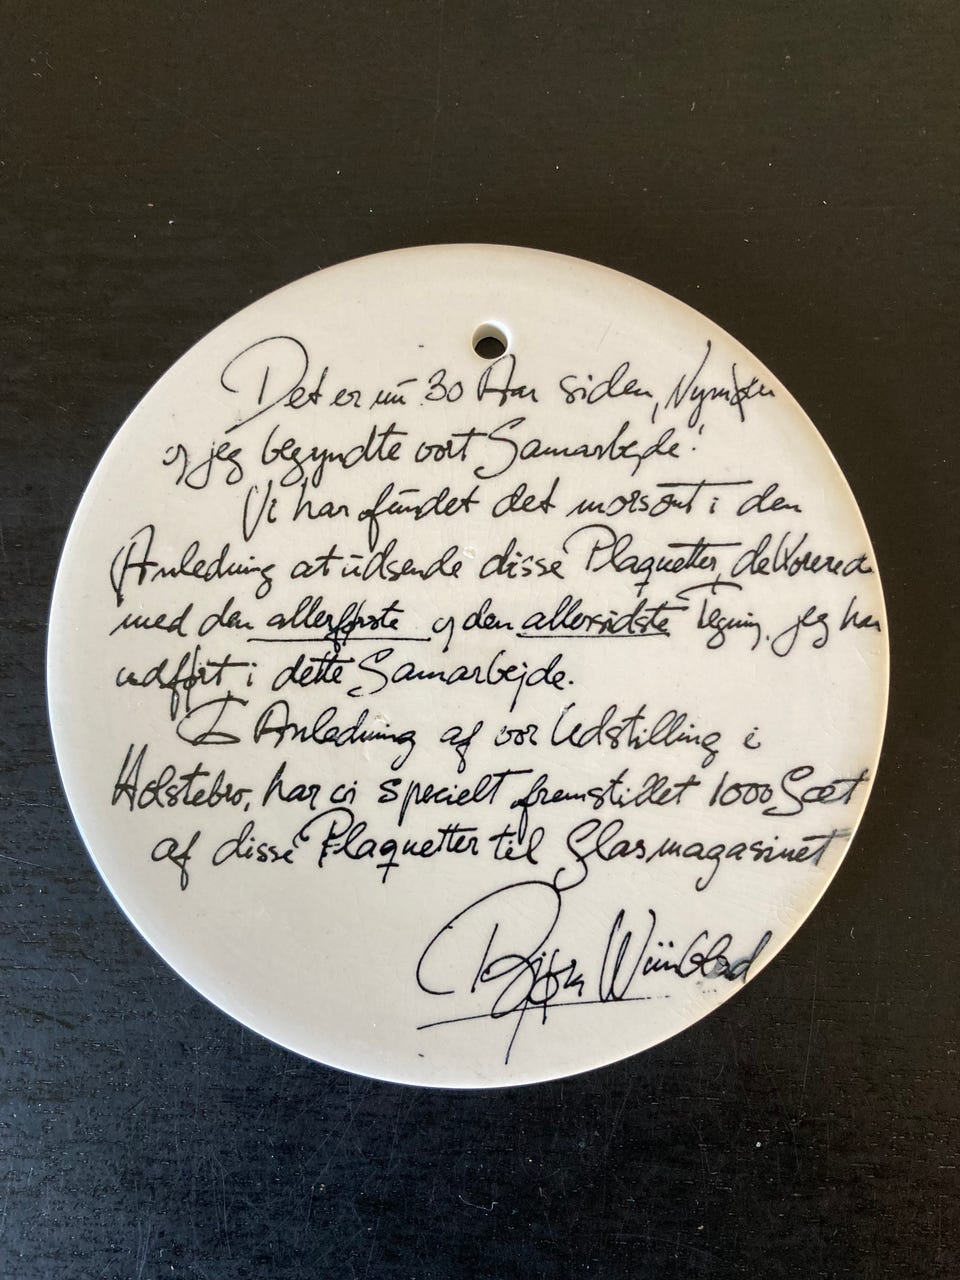 Det er nu 30 Aar siden, Nymølle
og jeg begyndte vort Samarbejde.
Vi har fundet det morsomt i den
Anledning at udsende disse Plaquetter, dekorered
med den allerførste og den allersidste Tegning, jeg har
udført i dette Samarbejde.
I Anledning af vor Udstilling i
Holstebro, har vi specielt fremstillet 1000 Sæt
af disse Plaquetter til Glasmagasinet
Bjørn Wiinblad